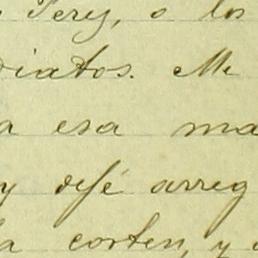 Perez, o los
diatos. Me
a esa ma
y dejé arreg
la corten, y